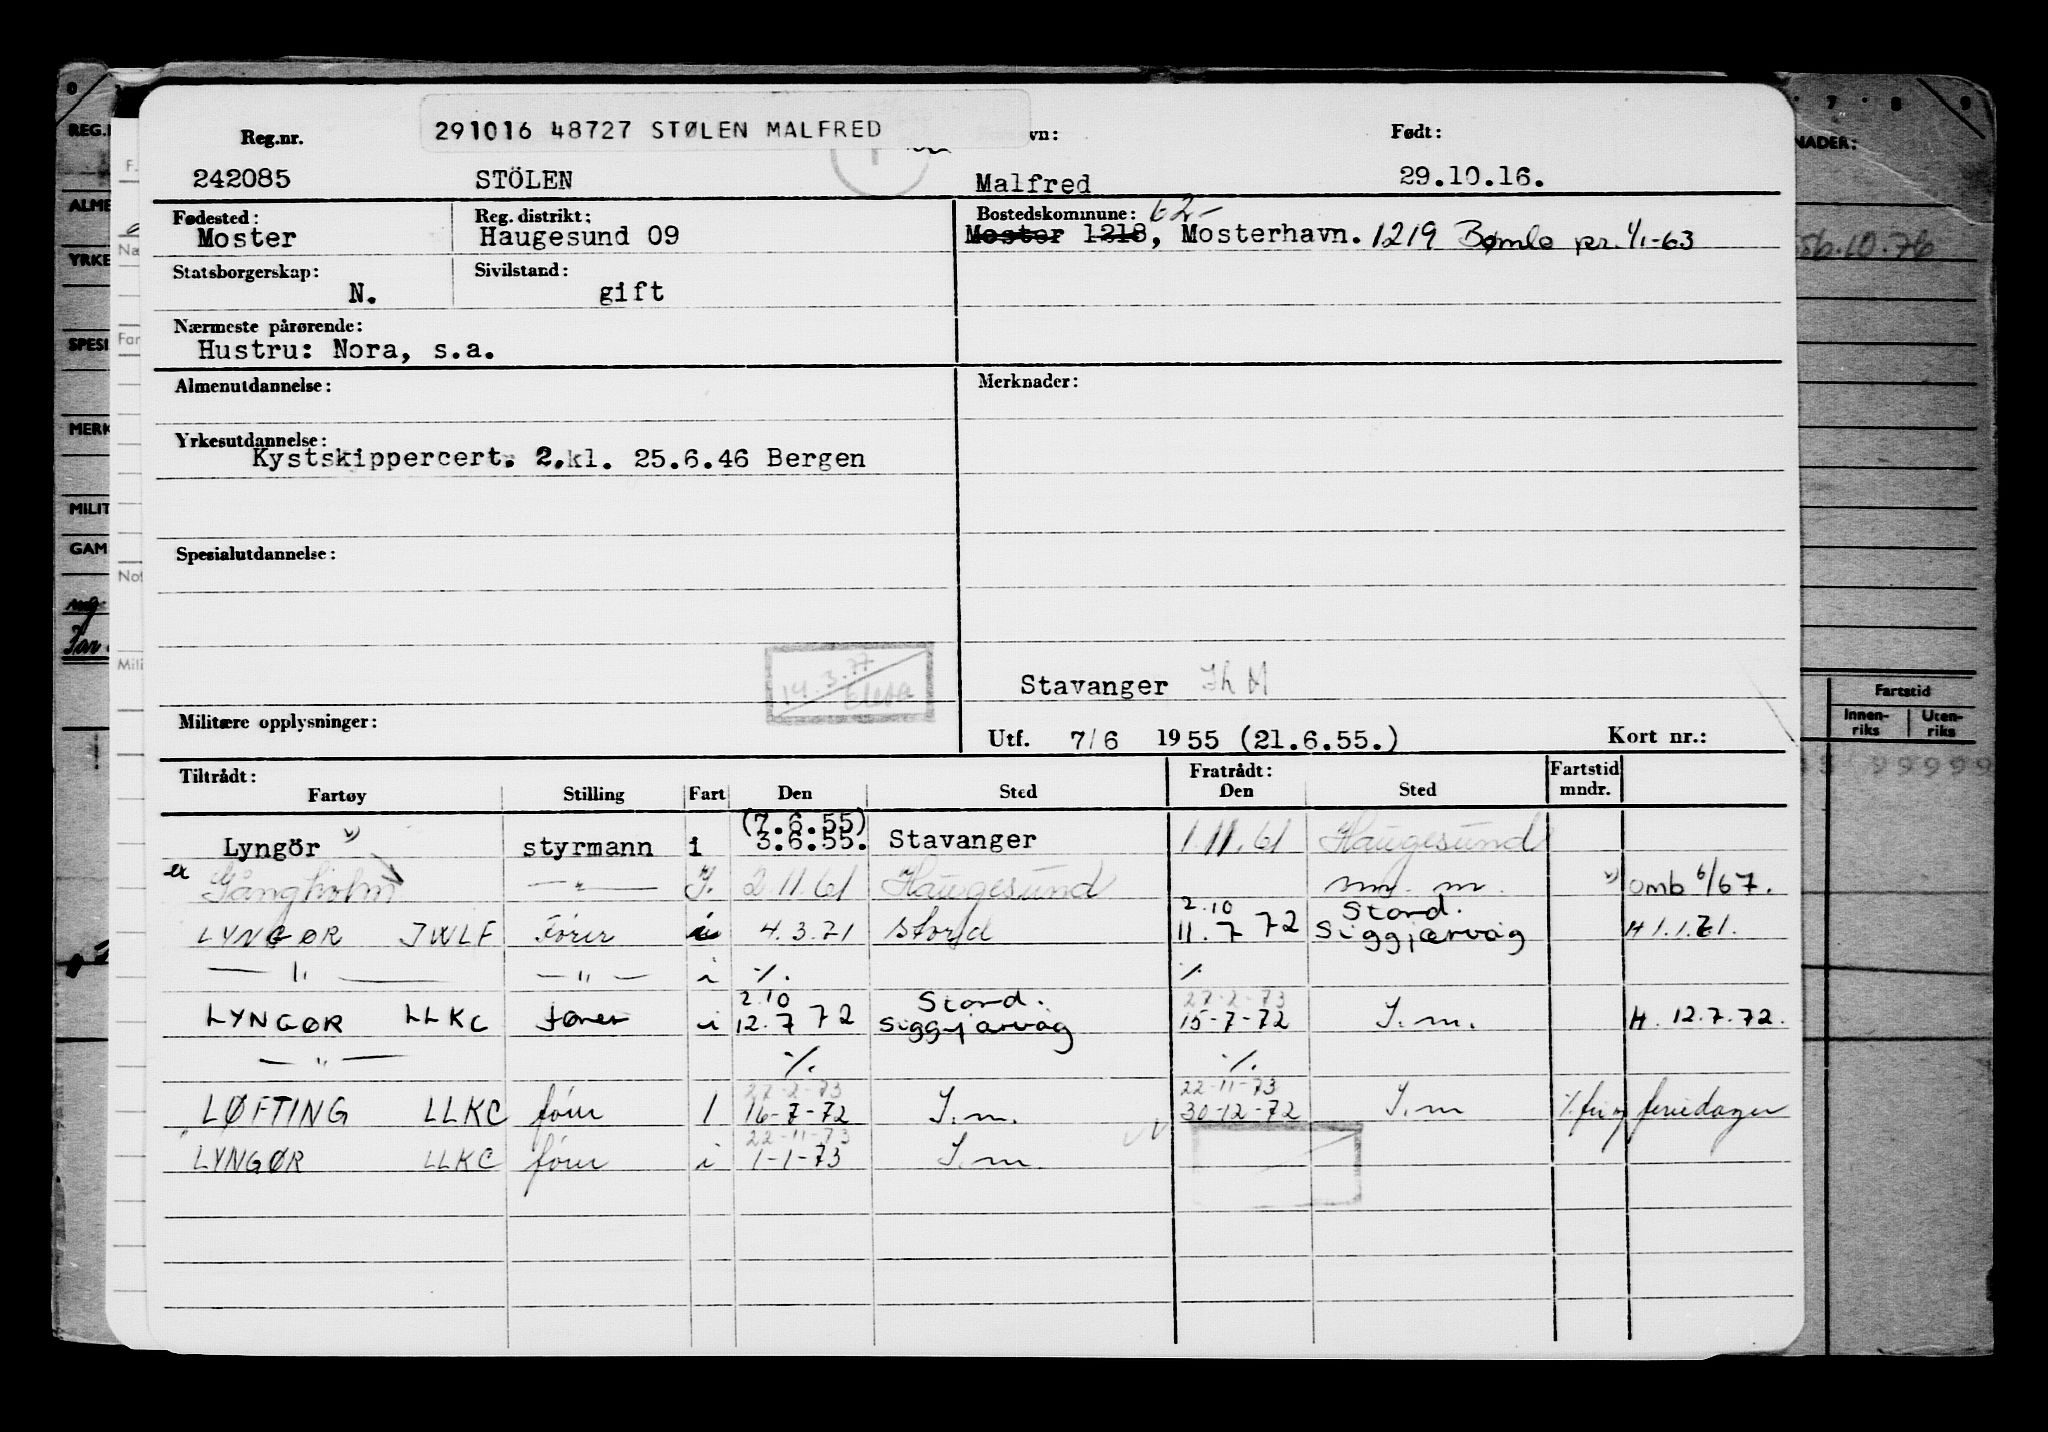 291016 48727 STØLEN MALFRED
Reg.nr. vn: Født:
242085 STÖLEN Malfred 29.10.16.
Fødested: Reg. distrikt: Bostedskommune: 62-
Moster Haugesund 09 Moster 1218, Mosterhavn. 1219 Bømlo pr. 1/1-63
Statsborgerskap: Sivilstand:
N. gift
Nærmeste pårørende:
Hustru: Nora, s.a.
Almenutdannelse: Merknader:
Yrkesutdannelse:
Kystskippercert. 2.kl. 25.6.46 Bergen
Spesialutdannelse:
14.3.77
Stavanger
Militære opplysninger:
Utf. 7/6 1955 (21.6.55.) Kort nr.:
Tiltrådt: Fratrådt: Fartstid
Fartøy Stilling Fart Den Sted Den Sted mndr.
(7.6.55)
Lyngör v) styrmann i 3.6.55. Stavanger 1.11.61 Haugesund
ex Gångholm — " — I. 2.11.61 Haugesund v) omb 6/67.
2.10 Stord.
LYNGØR JWLF Fører i 4.3.71 Stord 11.7 72 Siggjarvåg H 1.1.71.
— " — — " — i ./. ./.
2.10 Stord. 27-2-73
LYNGØR LLKC fører i 12.7 72 Siggjarvåg 15-7-72 I.m. H. 12.7.72.
— " — ./. ./.
27-2-73 22-11-73
LØFTING LLKC fører I 16-7-72 I.m. 30-12-72 I.m ./. fri og feriedager
22-11-73
LYNGØR LLKC fører i 1-1-73 I.m.
0 7 8 9
REG.
NADER:
ALME
YRKE
56.10.76
SPESI
MERK
MILIT
GAM
F.
Na
Far
Not
Mili
Fartstid
Innen-
riks
Uten-
riks
99999